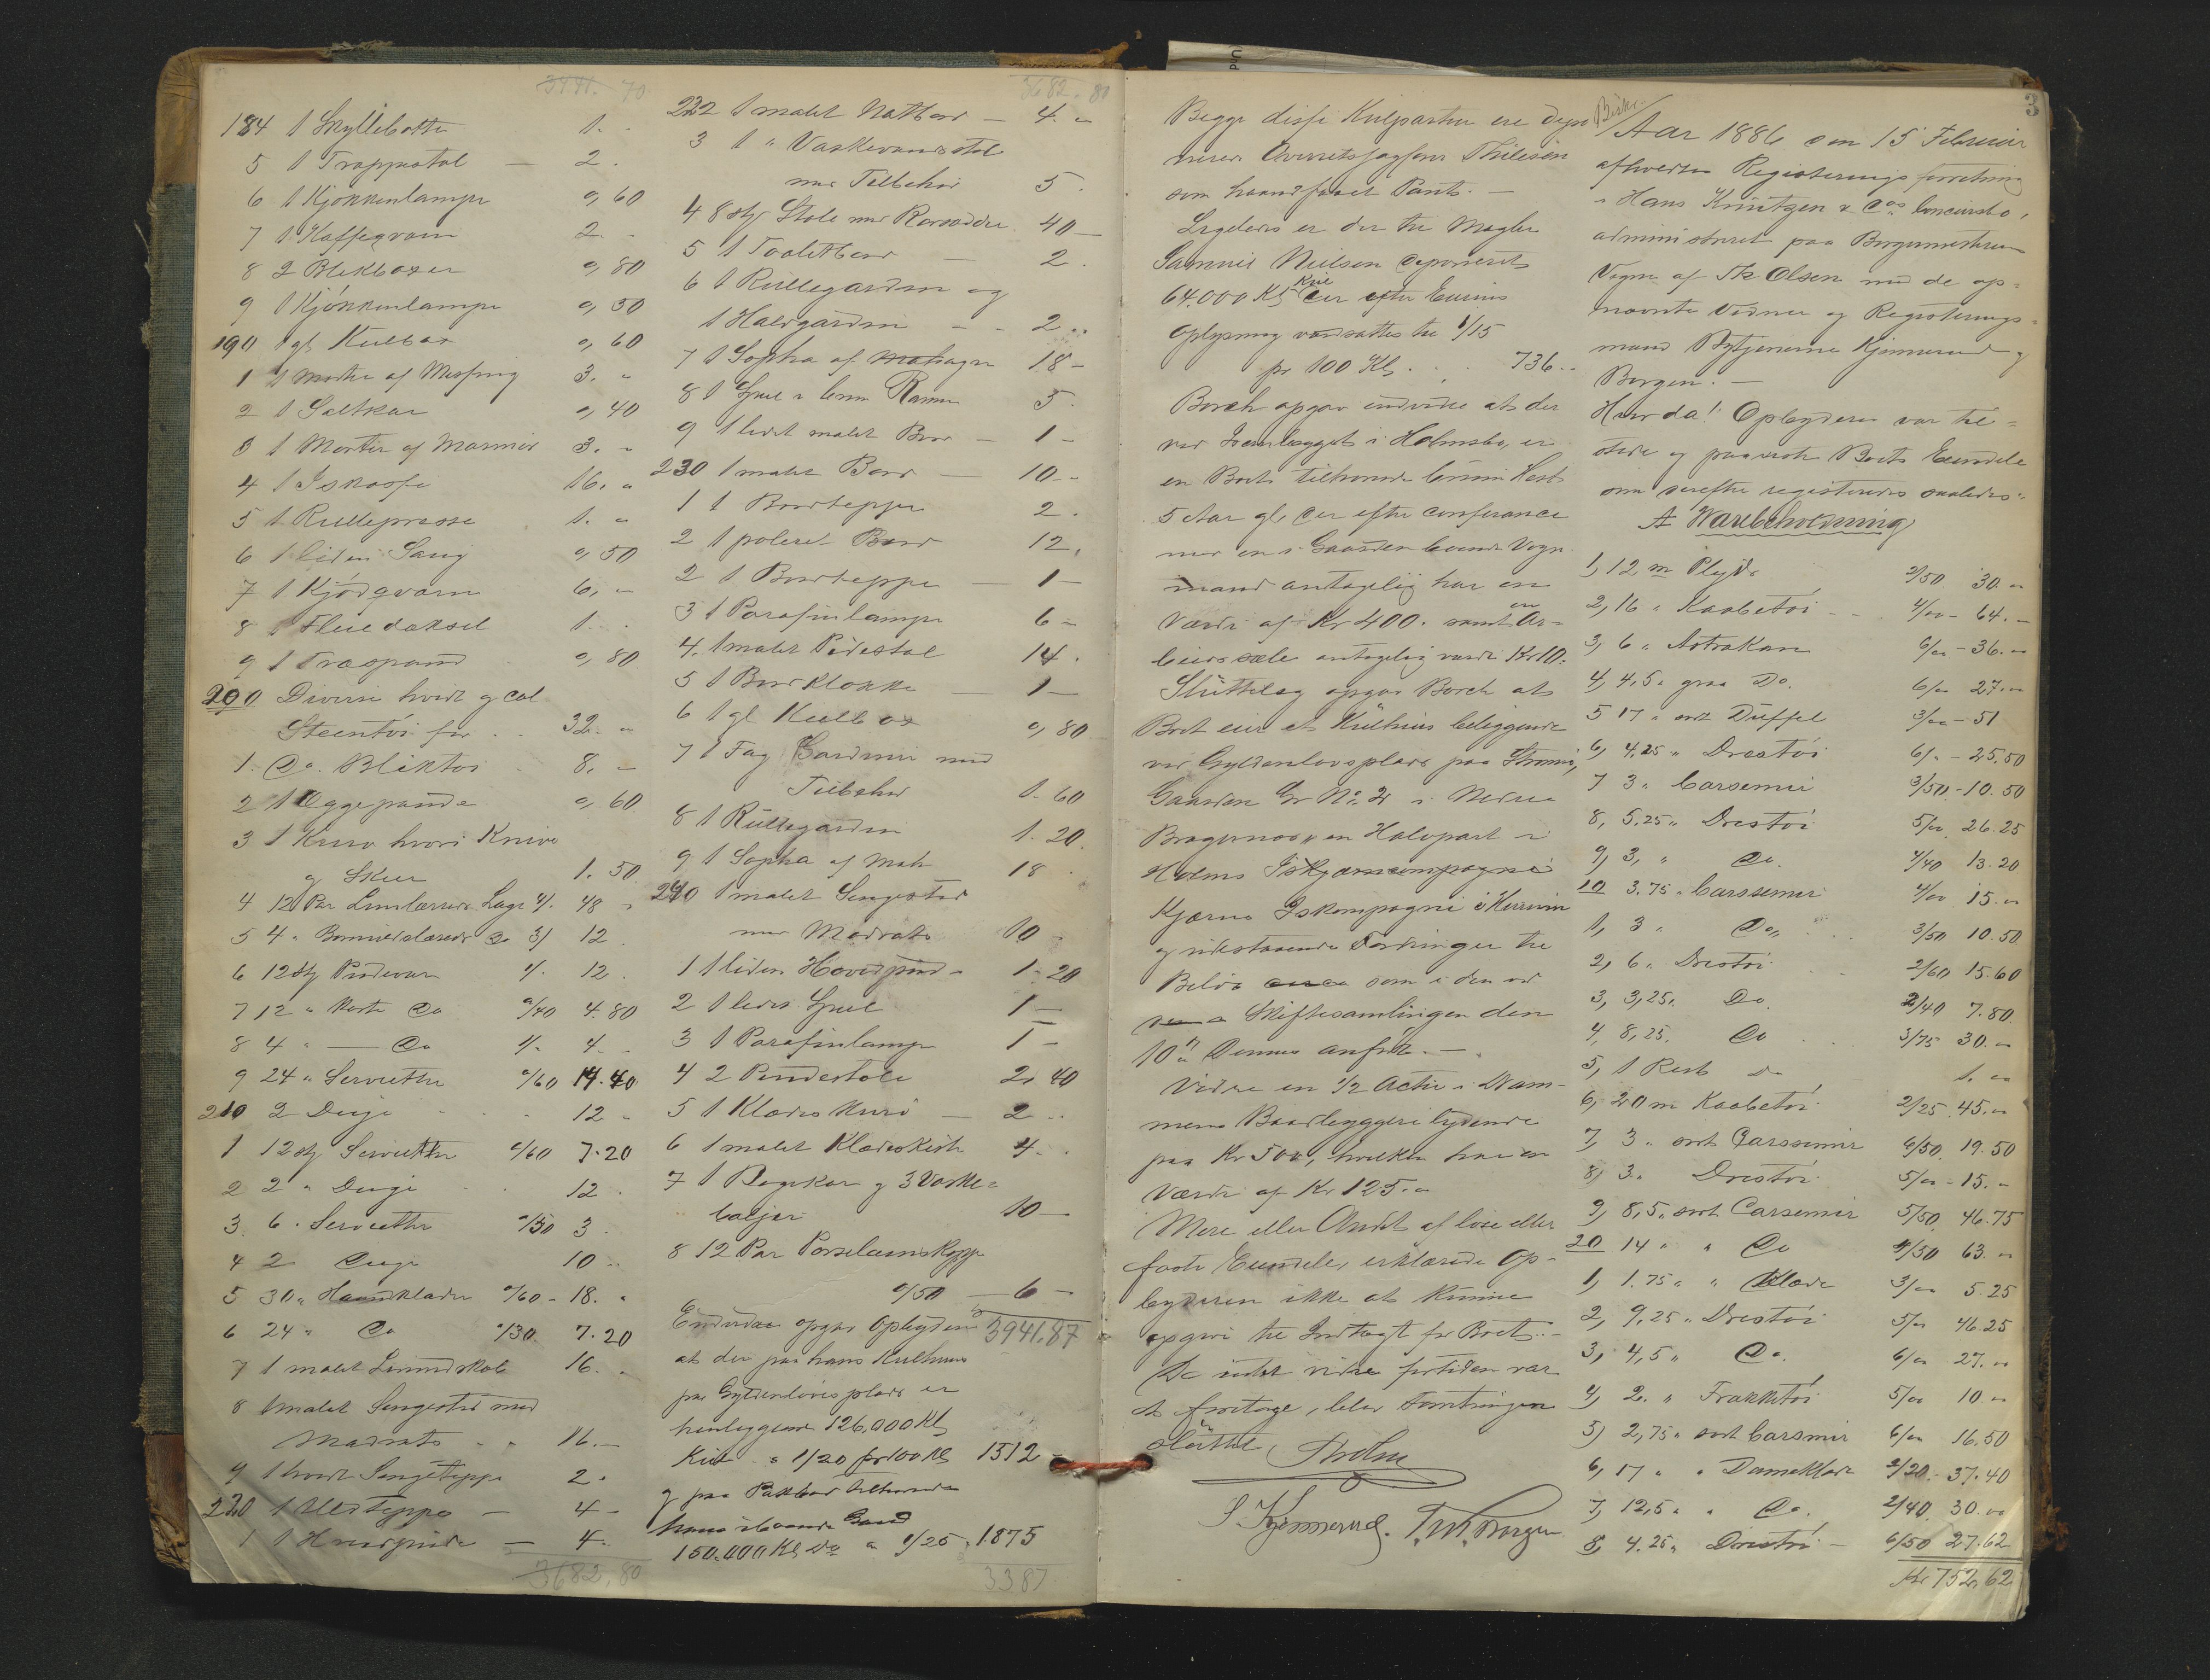 3441. 70
184 1 Skyllebøtte 1. -
5 1 Trappestol — 2.
6 1 Kjøkkenlampe 0,60
7 1 Kaffeqværn 2. -
8 2 Blikboxer 0,80
9 1 Kjøkkenlampe 0,50
190 1 gl. Kulbox 0,60
1 1 Morter af Messing 3. "
2 1 Saltkar 0,40
3 1 Morter af Marmor 3. "
4 1 Iskasse 16. "
5 1 Rullepresse 1. "
6 1 liden Saug 0,50
7 1 Kjødqværn 6, "
8 1 Fluedæksel 1. .
9 1 Træspand 0,80
200 Diverse hvidt og col
Steentøi for 32. "
1. Do. Bliktøi 8. -
2 1 Æggepande 0,60
3 1 Kurv hvori Knive
og Skeer 1.50
4 12 Par Linlærreds Lagn 4/. 48 -
5 4 " Bomuldslærreds Do 3/ 12.
6 12 St Pudevar 1/. 12.
7 12 " korte Do 0/40 4.80
8 4 " — Do 1/. 4. -
9 24 " Servietter 0/60 14.40
210 2 Duge 12 -
1 12 St Servietter 0/60 7.20
2 2 " Duge 12.
3. 6. Servietter 0/50 3.
4 2 Duge 10 -
5 30 " Haandklæder 0/60 - 18. "
6 24 " Do 0/30. 7.20
7 1 malet Linnedskab 16. .
8 1 malet Sengested med
Madrats 16. —
9 1 hvidt Sengeteppe 2.
220 1 Uldteppe — 4 -
1 1 Hovedpude — 4.
3682,80
3682. 80
222 1 malet Natbord — 4. "
3 1 " Vaskevandsstol
med Tilbehør 5.
4 8 Stk Stole med Rørsæder 40 —
5 1 Toiletbord — 2.
6 1 Rullegardin og
1 Halvgardin - - 2 ..
7 1 Sopha af Mahagni 18 -
8 1 Speil i brun Ramme 5.
9 1 lidet malet Bord — 1 -
230 1 malet Bord — 10 -
1 1 Bordteppe 2.
2 1 poleret Bord 12.
2 1 Bordteppe — 1 —
3 1 Parafinlampe 6 -
4. 1 malet Pidestal 14.
5 1 Bordklokke 1 —
6 1 gl Kulbox 0,80
7 1 Fag Gardiner med
Tilbehør 1.60
8 1 Rullegardin 1.20.
9 1 Sopha af Mah 18.
240 1 malet Sengested
med Madrats 10 -
1 1 liden Hovedpude - 1.20
2 1 lidet Speil 1 —
3 1 Parafinlampe 1 -
4 2 Pindestole 2.40
5 1 Klædeskurv — 2 ..
6 1 malet Klædeskiste 4. .
7 1 Bagekar og 3 Vaske=
baljer 10 —
8 12 Par Porselænskopper
0/50 — 6 -
Endvidere opgav Opbyderen 3941.87
at der paa hans Kulhuus
paa Gyldenløves plads er
henliggende 126,000 Kl
Kul a 1/20 pr 100 Kl 1512 -
og paa Pakbod tilhørende
hans iboende Gaard
150.000 Kl Do a 1/25 1875
3387
Begge disse Kulpartier ere depo
neret Overretssagfører Thilesen
som haandfaaet Pant. —
Ligeledes er der til Megler
Samuel Nielsen deponeret
64.000 Kl Kul der efter Eiernes
Oplysning værdsattes til 1/15
pr 100 Kl . . . 736. -
Borch opgav endvidere at der
ved Isanlægget i Holmsbo, er
en Boets tilhørende brun Hest
5 Aar gl, der efter conferance
med en i Gaarden boende Vogn
mand antagelig har en
Værdi af Kr 400. samt en Ar=
beidssele antagelig værdi Kr 10.
Sluttelig opgav Borch at
Boet eier et Kulhuus beliggende
ved Gyldenløvsplads paa Strømsø,
Gaarden Gr No. 21 i Nedre
Bragernæs, en Halvpart i
Holms Iskjærscompagni
Kjærns Iskompagni i Hurum
og udestaaende Fordringer til
Beløb som i den ved
Skiftesamlingen den
10de Dennes anført. —
Videre en 1/2 Actie i Dram-
mens Baadbyggeri lydende
paa Kr 500, hvilken har en
Værdi af Kr 125. "
Mere eller Andet af løse eller
faste Eiendele, erklærede Op-
byderen ikke at kunne
opgive til Indtægt for Boet. -
Da intet videre for tiden var
at foretage, blev Forretningen
sluttet.
Tholm
S. Kjønnerud. T.M. Borgen
3
Beskr.
Aar 1886 den 15 Februar
afholdtes Registreringsforretning
i Hans Knutzen & Cos Concursbo,
administreret paa Borgermesterens
Vegne af Th Olsen med de op=
nævnte Vidner og Registrerings=
mænd Bytjenerne Kjønnerud og
Borgen. —
Hvor da! Opbyderen var til=
stede og paaviste Boets Eiendele
som derefter registreredes saaledes:
A Varebeholdning
1, 12 m Plyds 2/50 30. "
2, 16 " Kaabetøi - - 4/00 - 64. -
3, 6 " Astrakan 6/00 - 36. "
4, 4,5 " graa Do. 6/00 27. "
5 17 " sort Düffel 3/00 - 51
6, 4.25 " Drestøi 6/. - 25.50
7 3 " Carsemir 3/50. - 10.50
8, 5.25 " Drestøi 5/00. 26.25
9, 3, " Do. 4/40 13.20
10 3.75 " Carssemir 4/00 15. "
1, 3 " Do " 3/50 10.50
2, 6 " Drestøi 2/60 15.60
3, 3,25. Do. 2/40 7.80
4, 8,25. Do 3/75 30. "
5, 1 Rest Do 1. "
6, 20 m Kaabetøi 2/25 45. "
7, 3 " sort Carssemir 6/50. 19.50
8, 3 " Drestøi 5/00 - 15. -
9, 8,5 " sort Carsemir 5/50. 46.75
20 14 " " Do 4/50 63. "
1, 1.75 " " Klæde 3/00 5.25
2, 9.25 " Drestøi 5/00 46.25
3, 4,5 " Do. 6/00 27. "
4, 2. " Frakketøi 5/00 10 "
5, 2,75 " sort Carsmir 6/00 16.50
6, 17 " " Dameklæde 2/20. - 37.40
7, 12,5 " " Do. 2/40. 30.00
8, 4.25 " Drestøi — 6/50 27.62
Kr 752,62